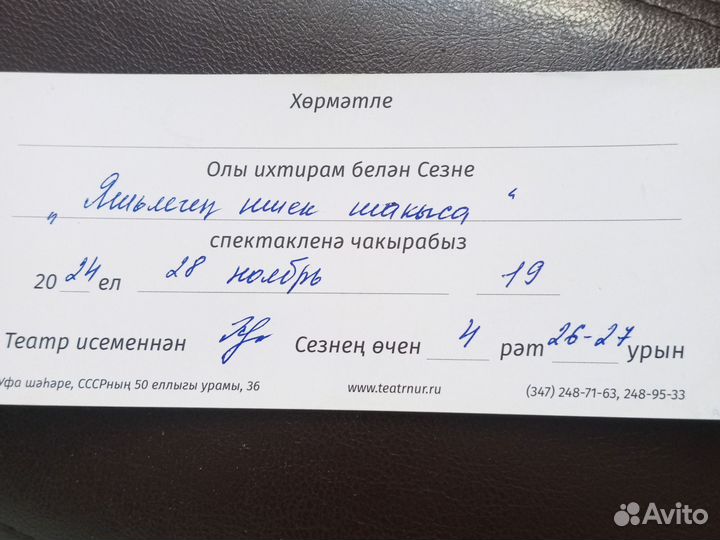 Хөрмәтле
Олы ихтирам белән Сезне
„ Яшьлегең ишек шакыса “
спектакленә чакырабыз
20 24 ел 28 ноябрь 19
Театр исеменнән Сезнең өчен 4 рәт 26-27 урын
Уфа шәһәре, СССРның 50 еллыгы урамы, 36 www.teatrnur.ru (347) 248-71-63, 248-95-33
Avito